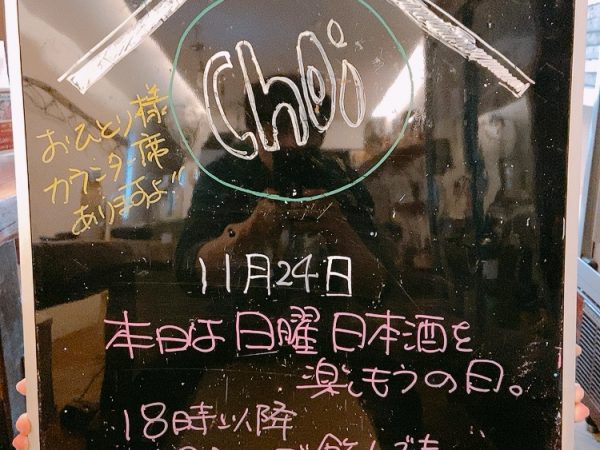 Choi
おひとり様
カウンター席
ありますよ!!
11月24日
本日は日曜日本酒を
楽しもうの日。
18時以降